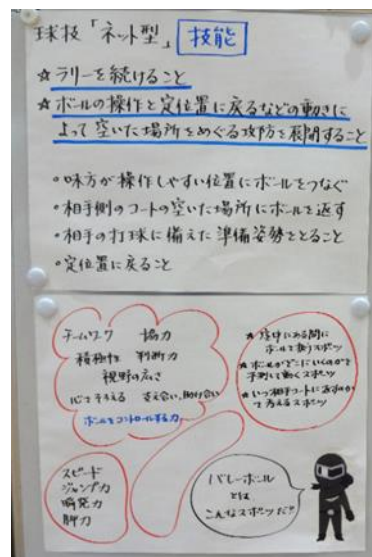 球技「ネット型」 技能
☆ラリーを続けること
☆ボールの操作と定位置に戻るなどの動きに
よって空いた場所をめぐる攻防を展開すること
・味方が操作しやすい位置にボールをつなぐ
・相手側のコートの空いた場所にボールを返す
・相手の打球に備えた準備姿勢をとること
・定位置に戻ること
チームワーク 協力
積極性 判断力
視野の広さ
心をそろえる 支え合い、助け合い
ボールをコントロールする力
★空中にある間に
ボールを扱うスポーツ
★ボールがどこにいくのかを
予測して動くスポーツ
★いつ相手コートに返すのか
を考えるスポーツ
スピード
ジャンプ力
瞬発力
脚力
バレーボール
とは
こんなスポーツだ!!